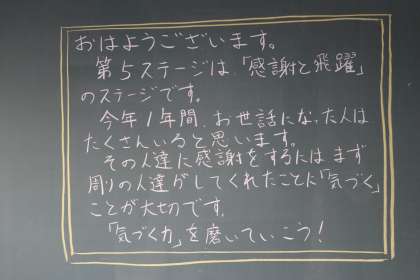 おはようございます。
第5ステージは、「感謝と飛躍」
のステージです。
今年1年間、お世話になった人は
たくさんいると思います。
その人達に感謝をするには まず
周りの人達がしてくれたことに「気づく」
ことが大切です。
「気づく力」を磨いていこう！